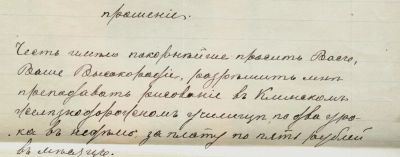 прошенiе.
Честь имѣю покорнѣйше просить Васъ,
Ваше Высокородiе, разрѣшить мнѣ
преподавать рисованiе въ Клинскомъ
желѣзнодорожномъ училищѣ, по два уро-
ка въ недѣлю, за плату по пять рублей
въ мѣсяцъ.